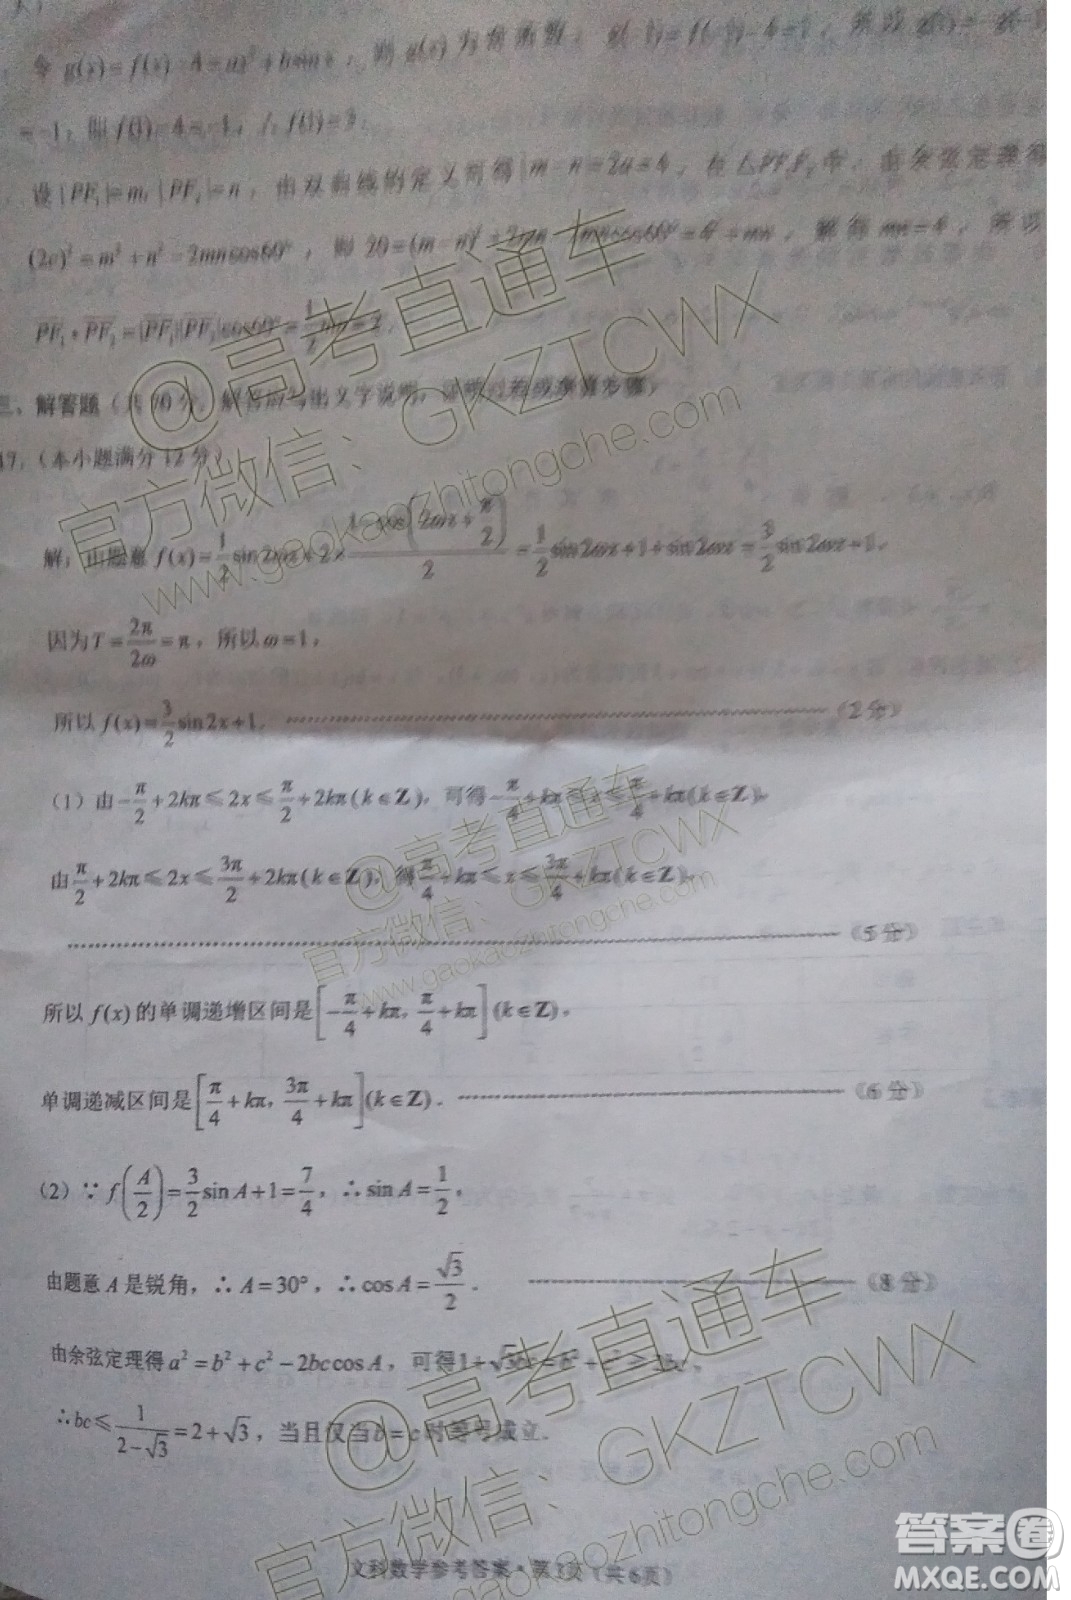 令 g(x)=f(x)-4=ax³+bsinx，则 g(x)为奇函数，
=-1，即 f(1)-4=-1，∴f(1)=3．
设|PF₁|=m，|PF₂|=n，由双曲线的定义可得|m-n|=2a=4，在△PF₁F₂中，由余弦定理得
(2c)²=m²+n²-2mncos60°，则 20=(m-n)²+2mn-2mncos60°=4²+mn，解得 mn=4，所以
PF₁•PF₂=|PF₁||PF₂|cos60°=1/2 mn=2．
三、解答题（共70分．解答应写出文字说明，证明过程或演算步骤）
17.（本小题满分12分）
解：由题意 f(x)=1/2 sin2ωx+2×(1-cos(2ωx+π/2))/2=1/2 sin2ωx+1+sin2ωx=3/2 sin2ωx+1．
因为T=2π/2ω=π，所以ω=1，
所以 f(x)=3/2 sin2x+1．（2分）
（1）由-π/2+2kπ≤2x≤π/2+2kπ(k∈Z)，可得-π/4+kπ≤x≤π/4+kπ(k∈Z)，
由π/2+2kπ≤2x≤3π/2+2kπ(k∈Z)，得π/4+kπ≤x≤3π/4+kπ(k∈Z)，
（5分）
所以 f(x)的单调递增区间是[-π/4+kπ，π/4+kπ](k∈Z)，
单调递减区间是[π/4+kπ，3π/4+kπ](k∈Z)．（6分）
（2）∵f(A/2)=3/2 sinA+1=7/4，∴sinA=1/2，
由题意 A 是锐角，∴A=30°，∴cosA=√3/2．（8分）
由余弦定理得 a²=b²+c²-2bccosA，可得1+√3bc=b²+c²≥2bc，
∴bc≤1/(2-√3)=2+√3，当且仅当b=c时等号成立．
文科数学参考答案·第3页（共6页）
@高考直通车
官方微信：GKZTCWX
www.gaokaozhitongche.com
@高考直通车
官方微信：GKZTCWX
www.gaokaozhitongche.com
@高考直通车
官方微信：GKZTCWX
gaokaozhitongche.com
答案圈
MXQE.COM